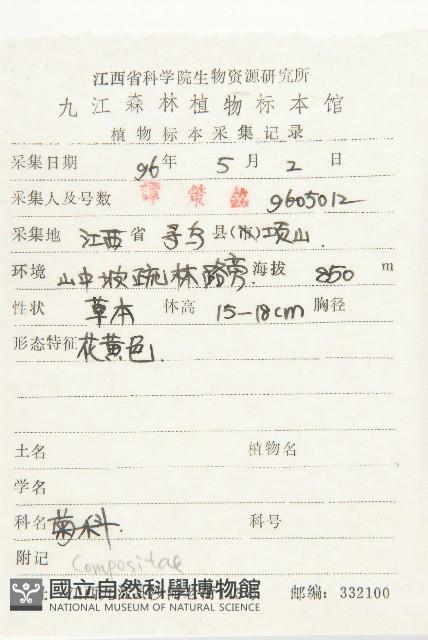 江西省科学院生物资源研究所
九江森林植物标本馆
植物标本采集记录
采集日期 96年 5月 2日
采集人及号数 谭策铭 9605012
采集地 江西省 寻乌县(市)项山.
环境 山中坡疏林路旁 海拔 850 m
性状 草本 体高 15-18cm 胸径
形态特征 花黄色.
土名 植物名
学名
科名 菊科. 科号
附记 Compositae
邮编: 332100
國立自然科學博物館
NATIONAL MUSEUM OF NATURAL SCIENCE